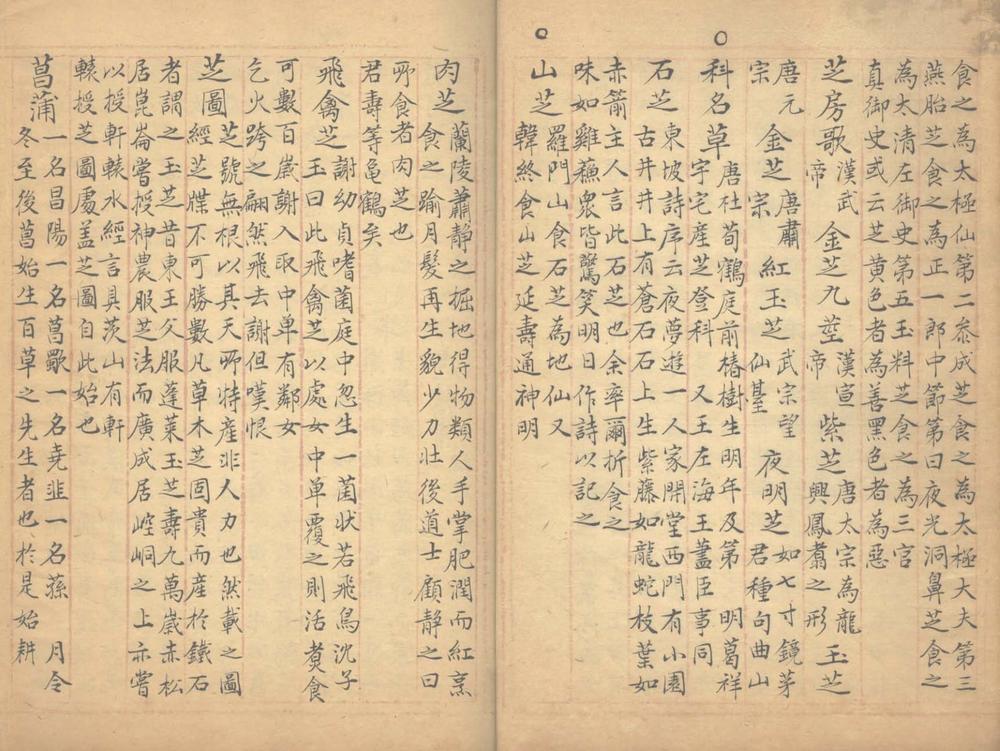 食之為太極仙第二泰成芝食之為太極大夫第三
燕胎芝食之為正一郎中節第曰夜光洞鼻芝食之
為太清左御史第五玉料芝食之為三宮
真御史或云芝黃色者為善黑色者為惡
芝房歌 漢武帝 金芝九莖 漢宣帝 紫芝 唐太宗為龍興鳳翥之形 玉芝
唐元宗 金芝 唐肅宗 紅玉芝 武宗望仙臺 夜明芝 如七寸鏡茅君種句曲山
科名草 唐杜荀鶴庭前椿樹生明年及第 明葛祥
宇宅產芝登科 又王左海王藎臣事同
石芝 東坡詩序云夜夢遊一人家開堂西門有小園
古井井上有蒼石石上生紫藤如龍蛇枝葉如
赤箭主人言此石芝也余率爾折食之
味如雞蘓衆皆驚笑明日作詩以記之
山芝 羅門山食石芝為地仙又
韓終食山芝延壽通神明
肉芝 蘭陵蕭靜之掘地得物類人手掌肥潤而紅烹
食之踰月髮再生貌少力壯後道士顧靜之曰
所食者肉芝也
君壽等龜鶴矣
飛禽芝 謝幼貞嗜菌庭中忽生一菌狀若飛鳥沈子
玉曰此飛禽芝以處女中单覆之則活煑食
可數百歲謝入取中单有鄰女
乞火跨之翩然飛去謝但嘆恨
芝圖 芝號無根以其天所特產非人力也然載之圖
經芝牒不可勝數凡草木芝固貴而產於鐵石
者謂之玉芝昔東王父服蓬萊玉芝壽九萬歲赤松
居崑崙嘗授神農服芝法而廣成居崆峒之上亦嘗
以授軒轅水經言具茨山有軒
轅授芝圖處盖芝圖自此始也
菖蒲 一名昌陽一名菖歜一名堯韭一名蓀 月令
冬至後菖始生百草之先生者也於是始耕